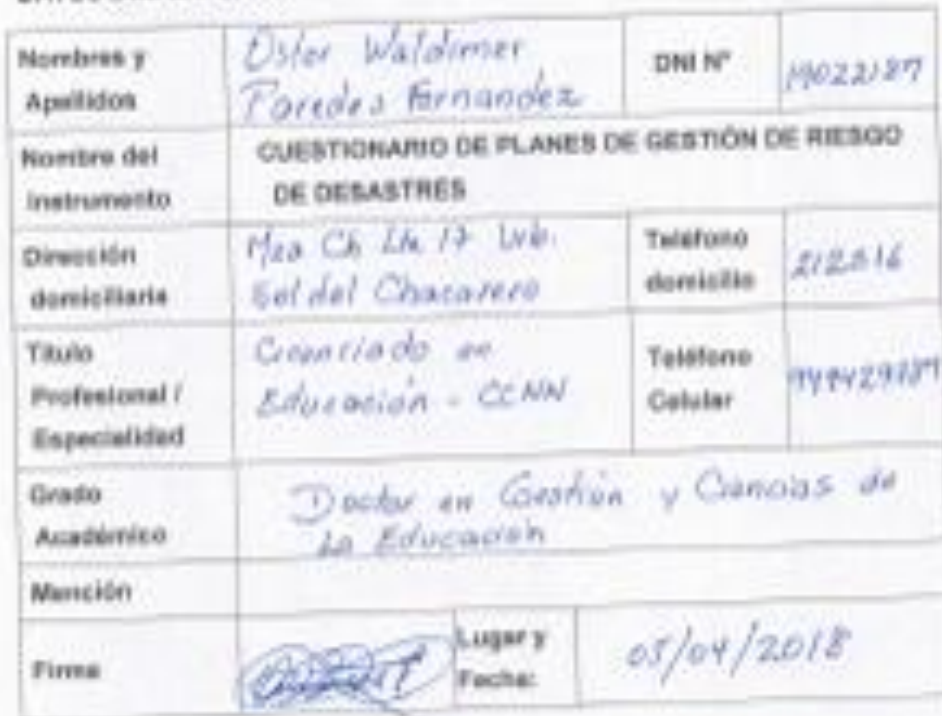 Nombres y Apellidos
Waldimer
Paredes Fernandez
DNI Nº
19022187
Nombre del instrumento
CUESTIONARIO DE PLANES DE GESTIÓN DE RIESGO
DE DESASTRES
Dirección domiciliaria
Mza Ch Lte 17 Urb.
Sol del Chacarero
Teléfono domicilio
Título Profesional / Especialidad
en
Educación - CCNN
Teléfono Celular
Grado Académico
Doctor en Gestión y Ciencias de
La Educación
Mención
Firma
Lugar y Fecha:
05/04/2018